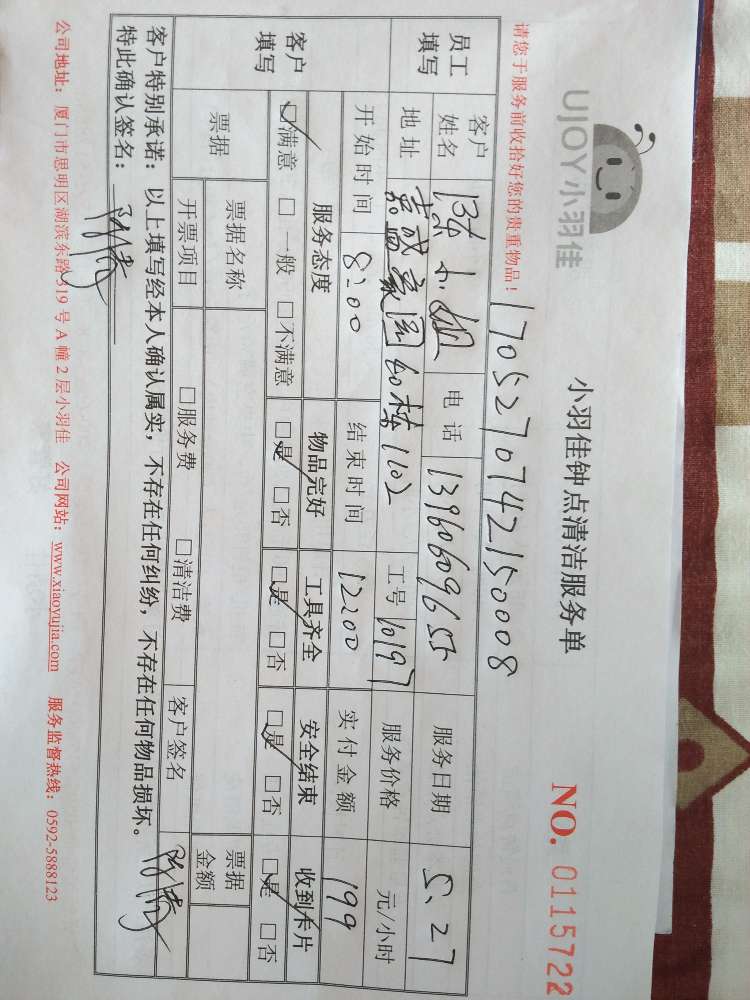 UJOY小羽佳
小羽佳钟点清洁服务单
NO. 0115722
请您于服务前收拾好您的贵重物品!
1705270742150008
员工填写
客户姓名 陈小姐 电话 13960609655 服务日期 5.27
地址 嘉盛豪园40栋1102 工号 10197 服务价格 元/小时
开始时间 8:00 结束时间 12:00 实付金额 199
客户填写
服务态度 物品完好 工具齐全 安全结束 收到卡片
☑满意 □一般 □不满意 ☑是 □否 ☑是 □否 ☑是 □否 ☑是 □否
票据 票据名称 票据金额
开票项目 □服务费 □清洁费 客户签名
客户特别承诺:以上填写经本人确认属实,不存在任何纠纷,不存在任何物品损坏。
特此确认签名:
公司地址:厦门市思明区湖滨东路319号A幢2层小羽佳 公司网站:www.xiaoyujia.com 服务监督热线:0592-5888123